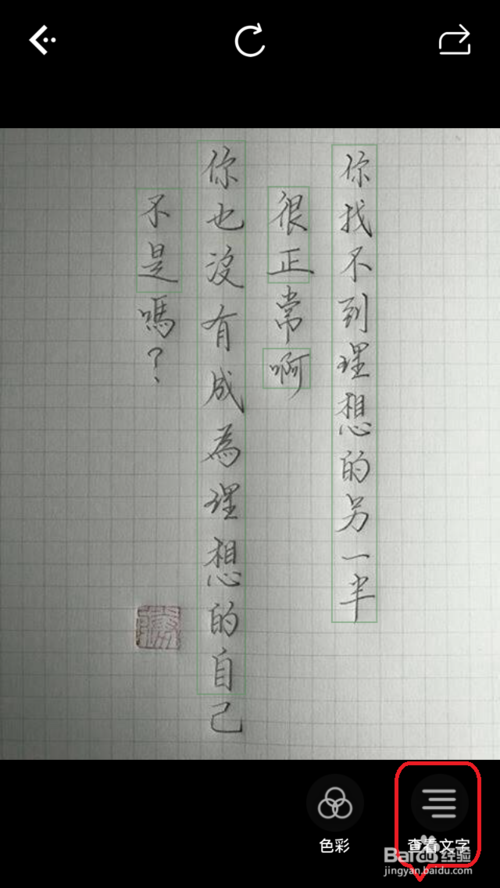 你找不到理想的另一半
很正常啊
你也沒有成為理想的自己
不是嗎？
色彩
查看文字
Baidu 经验
jingyan.baidu.com